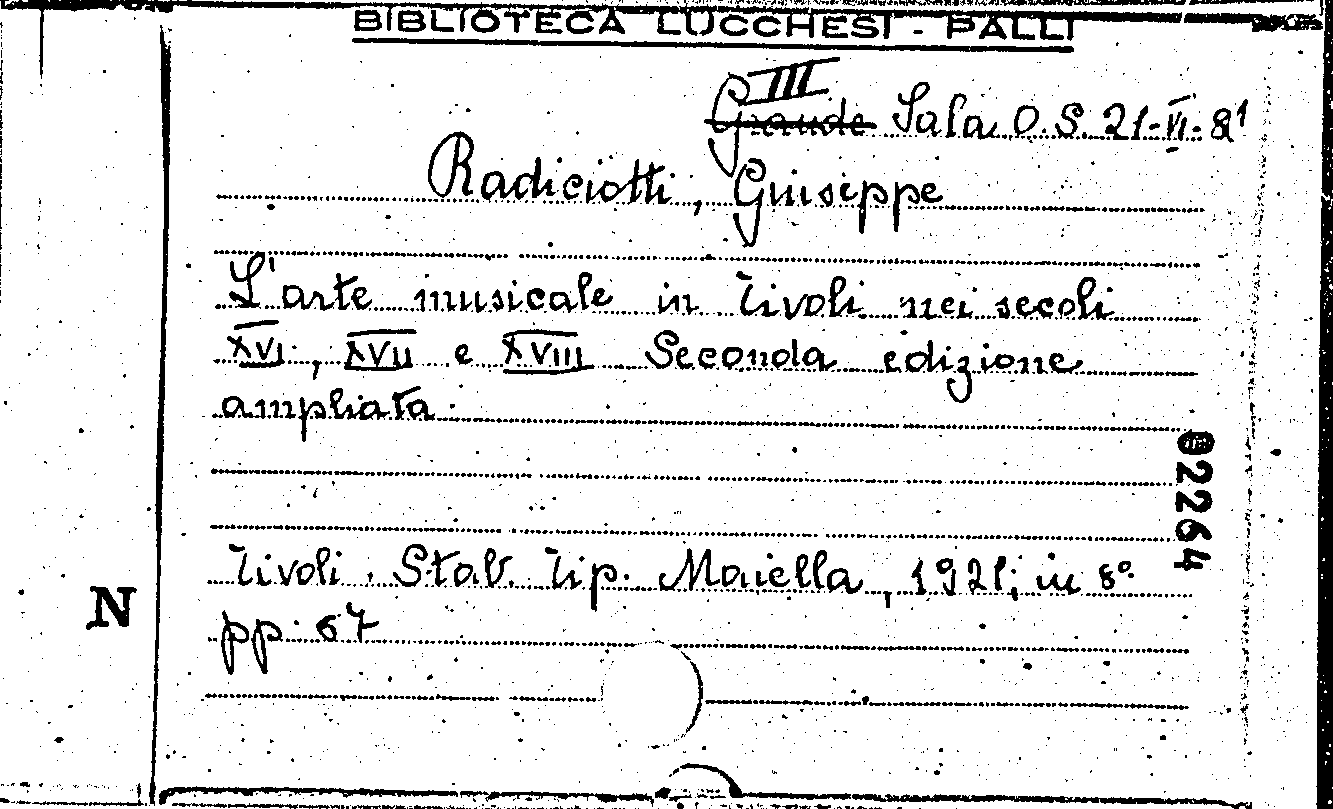 BIBLIOTECA LUCCHESI - PALLI
III
Grande Sala O.S. 21-VI-8¹
Radiciotti, Giuseppe
L'arte musicale in Tivoli nei secoli
XVI, XVII e XVIII Seconda edizione
ampliata.
02264
Tivoli. Stab. Tip. Maiella, 1921; in 8°
N
pp. 67